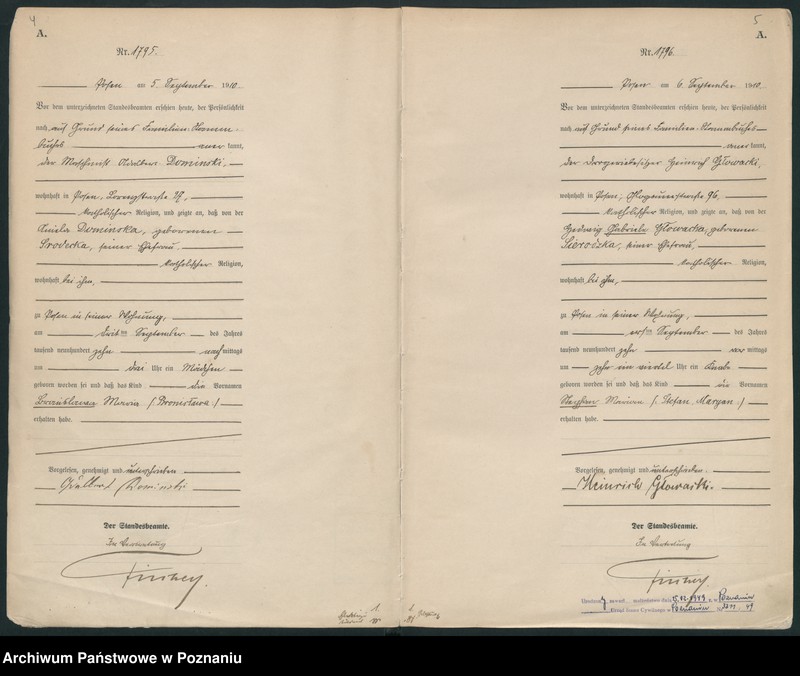 4
A.
Nr. 1795.
Posen am 5. September 1910.
Vor dem unterzeichneten Standesbeamten erschien heute, der Persönlichkeit
nach auf Grund seines Familien-Stamm-
buches anerkannt,
der Maschinist Adalbert Dominski,
wohnhaft in Posen,
katholischer Religion, und zeigte an, daß von der
Aniela Dominska, geborenen
Srodecka, seiner Ehefrau,
katholischer Religion,
wohnhaft bei ihm,
zu Posen in seiner Wohnung,
am dritten September des Jahres
tausend neunhundert zehn nachmittags
um drei Uhr ein Mädchen
geboren worden sei und daß das Kind die Vornamen
Bronislawa Maria (Bronisława)
erhalten habe.
Vorgelesen, genehmigt und unterschrieben
Adalbert Dominski
Der Standesbeamte.
In Vertretung
5
A.
Nr. 1796.
Posen am 6. September 1910.
Vor dem unterzeichneten Standesbeamten erschien heute, der Persönlichkeit
nach auf Grund seines Familien-Stammbuches
anerkannt,
der Drogeriebesitzer Heinrich Głowacki,
wohnhaft in Posen, Glogauerstraße 96,
katholischer Religion, und zeigte an, daß von der
Hedwig Gabriele Głowacka, geborenen
Sierodzka, seiner Ehefrau,
katholischer Religion,
wohnhaft bei ihm,
zu Posen in seiner Wohnung,
am ersten September des Jahres
tausend neunhundert zehn vormittags
um zehn ein viertel Uhr ein Knabe
geboren worden sei und daß das Kind die Vornamen
Stephan Marian (Stefan Maryan)
erhalten habe.
Vorgelesen, genehmigt und unterschrieben
Heinrich Głowacki
Der Standesbeamte.
In Vertretung
zawarł małżeństwo dnia 1949 r. w Poznaniu
Urząd Stanu Cywilnego w Poznaniu 49
Archiwum Państwowe w Poznaniu